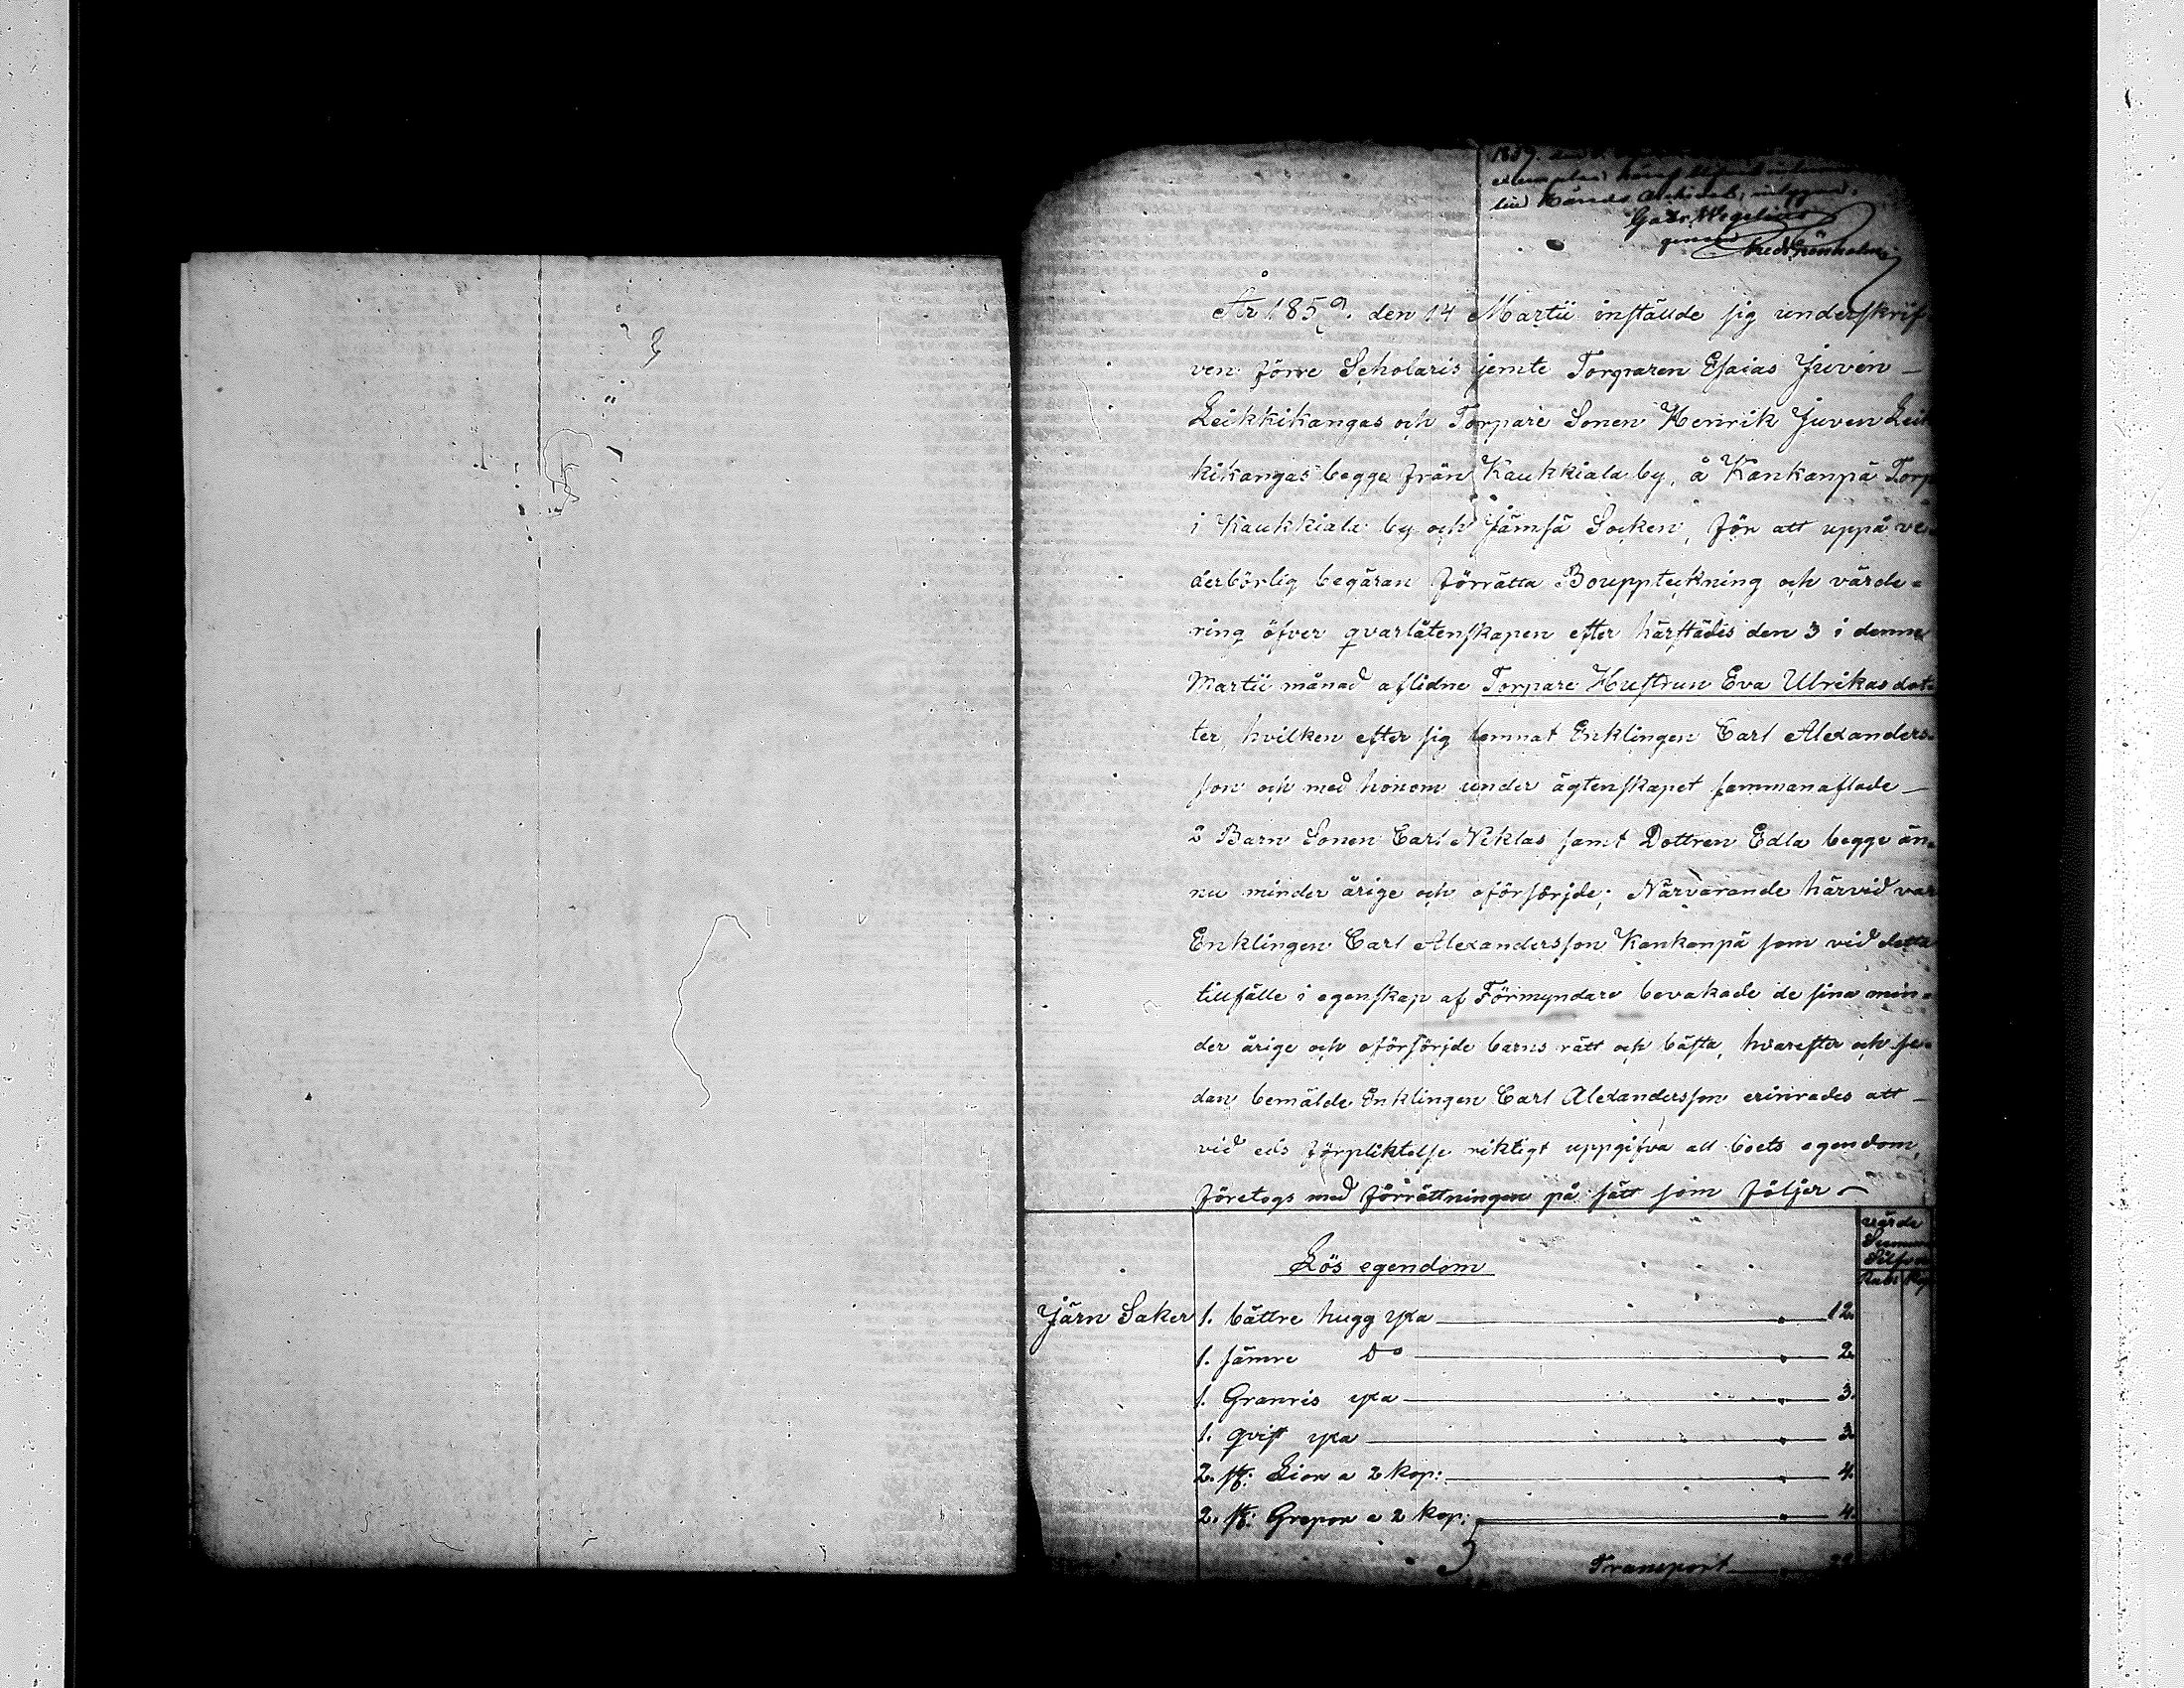 1859.
Härads inlyggnad.
Gabr. Wegelius
genom Fred Grönholm
År 1859. den 14 Martii inställde sig underskrif-
ven förre Scholaris jemte Torparen Esaias Juven —
Leikkikangas och Torpare Sonen Henrik Juven Leik
kikangas begge från Kaukkiala by, å Kankanpä Torp
i Kaukkiala by och Jämsä Socken, för att uppå ve-
derbörlig begäran förrätta Bouppteckning och värde-
ring öfver qvarlåtenskapen efter härstädes den 3 i denne
Martii månad aflidne Torpare Hustrun Eva Ulrikasdot-
ter, hvilken efter sig lemnat Enklingen Carl Alexanders-
son och med honom under ägtenskapet sammanaflade —
2 Barn Sonen Carl Niklas samt Dottren Edla begge än-
nu minder årige och oförsörjde; Närvarande härvid var
Enklingen Carl Alexandersson Kankanpä som vid detta
tillfälle i egenskap af Förmyndare bevakade de sina min-
der årige och oförsörjde barns rätt och bästa, hvarefter och se-
dan bemälde Enklingen Carl Alexandersson erinrades att —
vid eds förpliktelse riktigt uppgifva all boets egendom,
företogs med förrättningen på sätt som följer —
värde
Summa
Silfver
Rub: Kop
Lös egendom
Järn Saker 1. bättre hugg yxa — " — 12.
1. sämre Do — " — 2.
1. Granris yxa — " — 3.
1. qvist yxa — " — 3.
2. st: Lior a 2 Kop: — " — 4.
2. st: Grepor a 2 Kop: — " — 4.
Transport — "